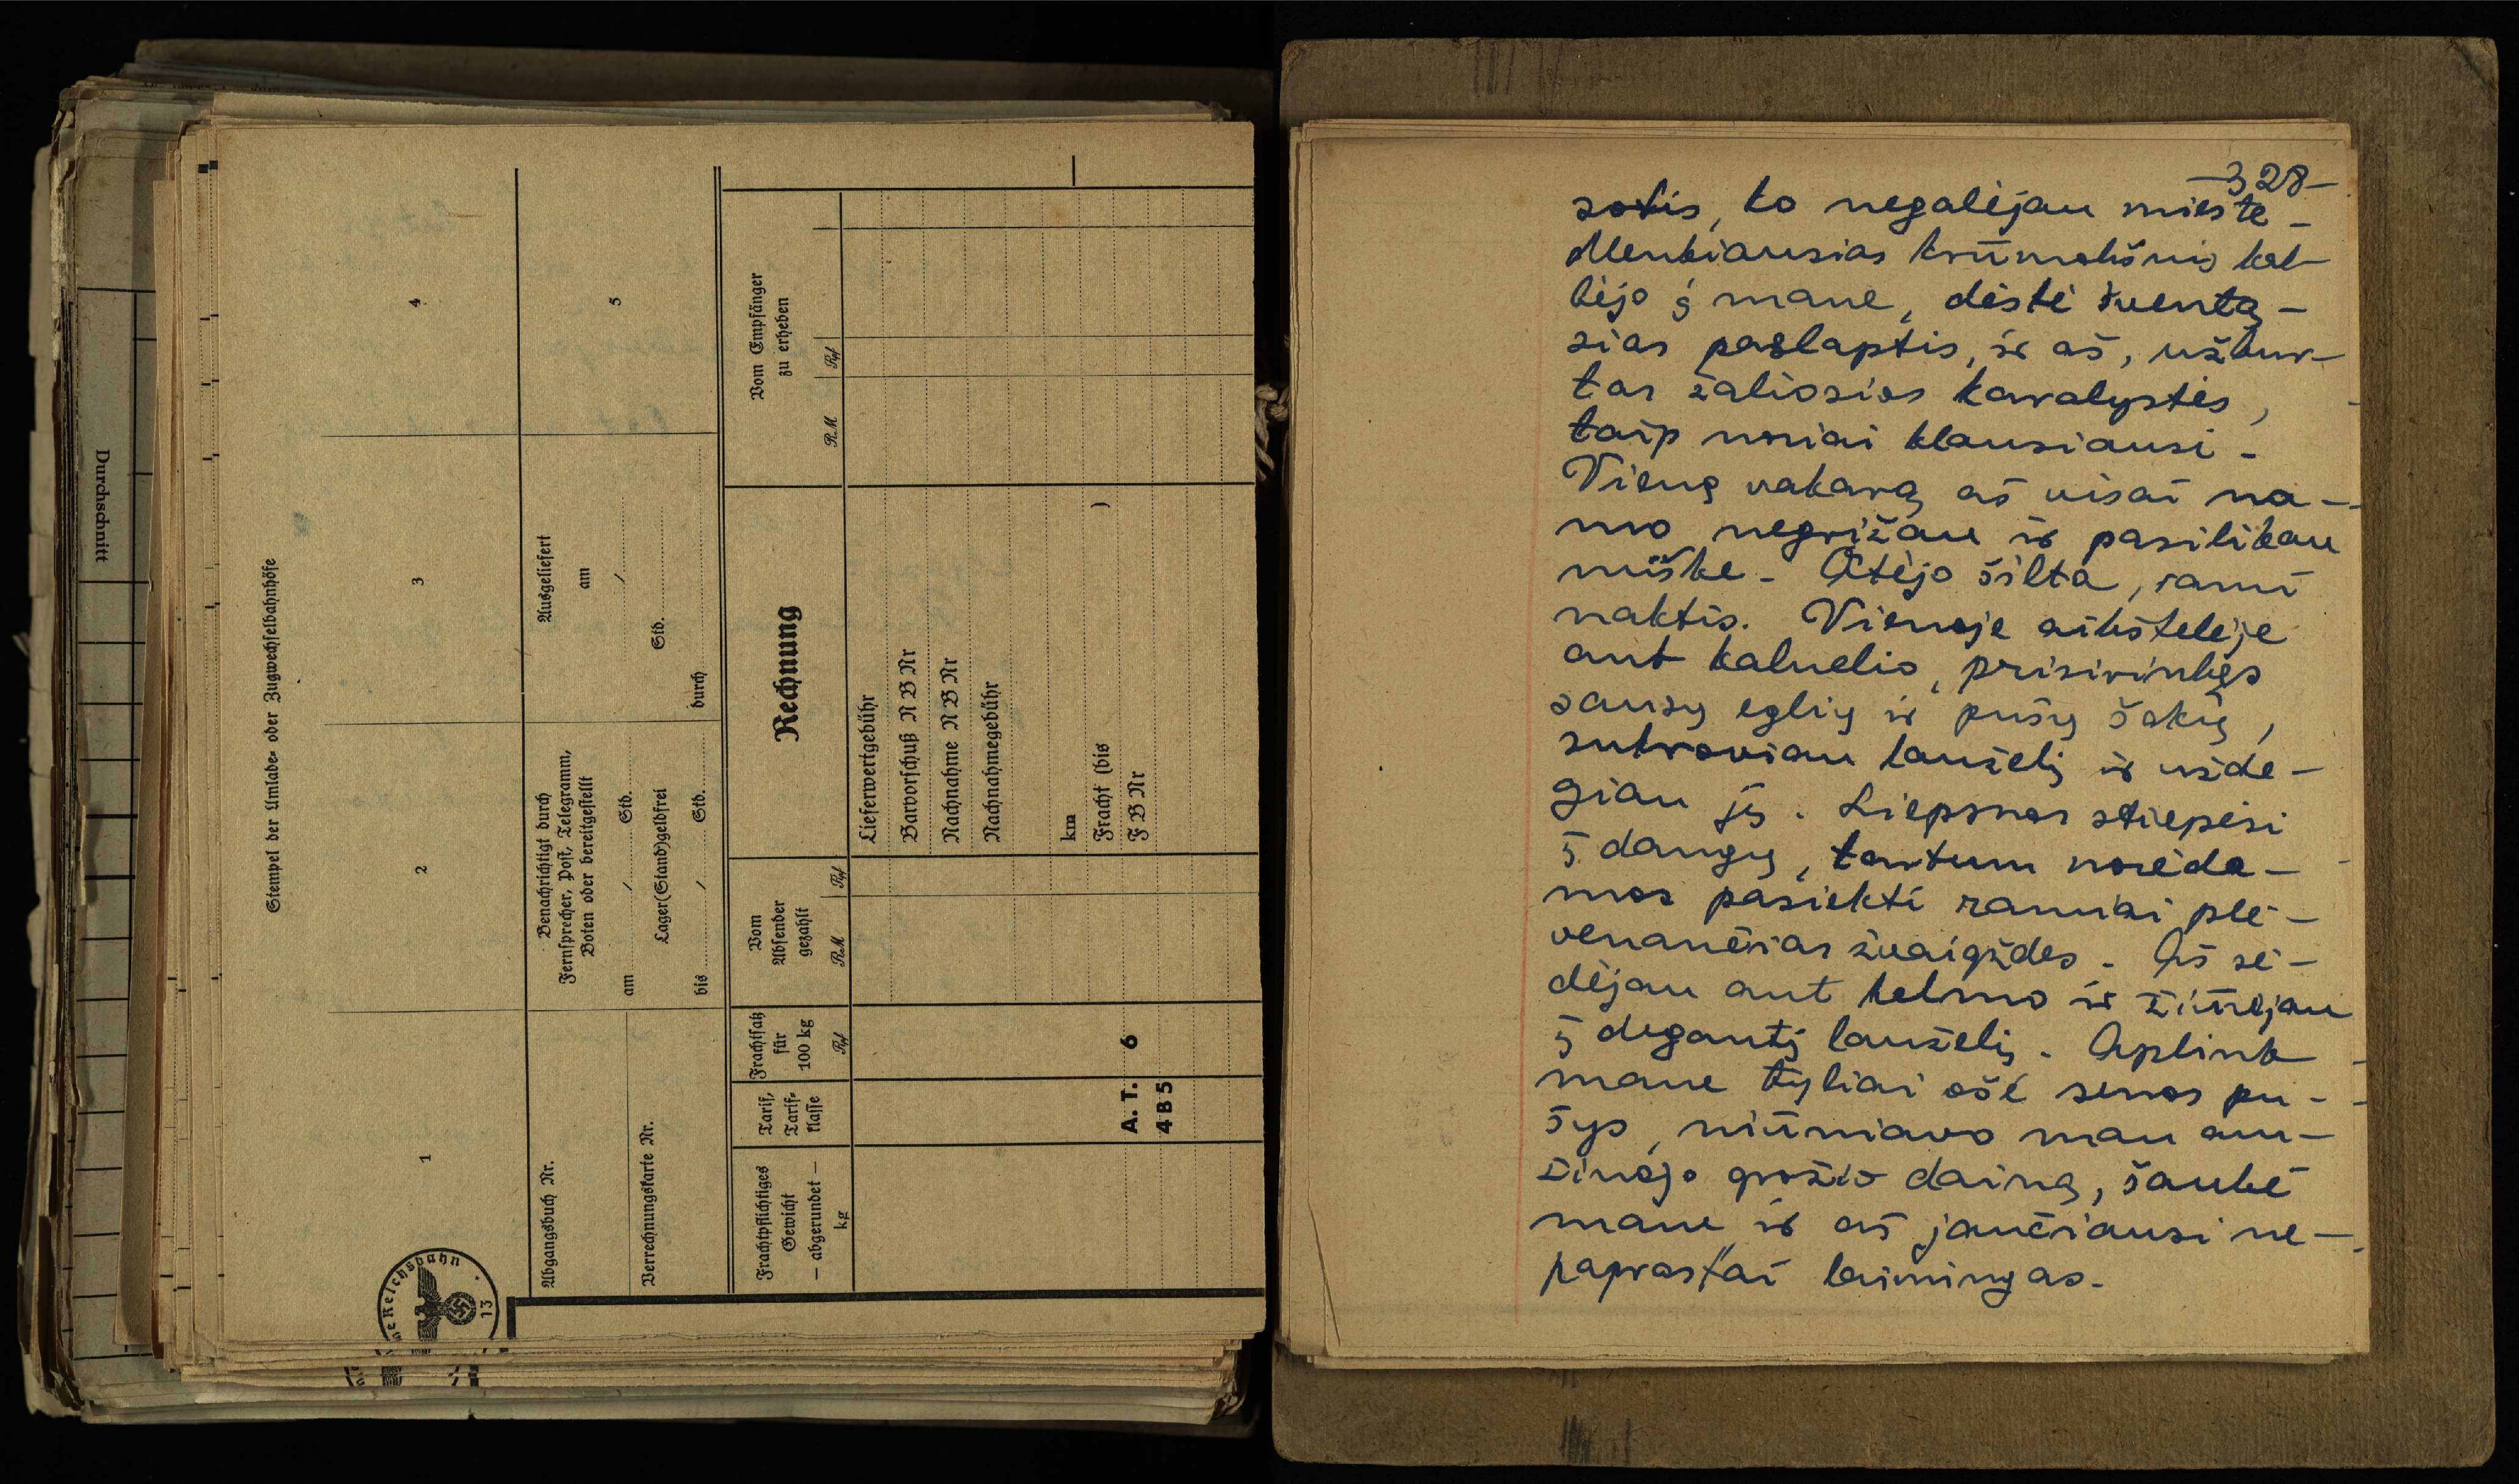 Durchschnitt
Stempel der Umlade- oder Zugwechselbahnhöfe
1
2
3
4
Abgangsbuch Nr.
Verrechnungskarte Nr.
Benachrichtigt durch
Fernsprecher, Post, Telegramm,
Boten oder bereitgestellt
am / Std.
Lager(Stand)geldfrei
bis / Std.
Ausgeliefert
am
/
Std.
durch
5
Frachtpflichtiges
Gewicht
— abgerundet —
kg
Tarif,
Tarif-
klasse
Frachtsatz
für
100 kg
Rpf
Vom
Absender
gezahlt
RM Rpf
Rechnung
Vom Empfänger
zu erheben
RM Rpf
Lieferwertgebühr
Barvorschuß N B Nr
Nachnahme N B Nr
Nachnahmegebühr
km
Fracht (bis )
A. T. 6 F B Nr
4 B 5
13
-328-
sotis, to negalėjau mieste.
Menkiausias krūmokšnis kal-
bėjo į mane, dėstė šventą-
sias paslaptis, ir aš, užbur-
tas žaliosios karalystės,
taip noriai klausiausi.
Vieną vakarą aš visai na-
mo negrįžau ir pasilikau
miške. Atėjo šilta, rami
naktis. Vienoje aikštelėje
ant kalnelio, prisirinkęs
sausų eglių ir pušų šakų,
sukroviau lauželį ir užde-
giau jį. Liepsnos stiepėsi
į dangų, tartum norėda-
mos pasiekti ramiai ple-
venančias žvaigždes. Aš sė-
dėjau ant kelmo ir žiūrėjau
į degantį lauželį. Aplink
mane tyliai ošė senos pu-
šys, niūniavo man am-
žinojo grožio dainą, šaukė
mane ir aš jaučiausi ne-
paprastai laimingas.